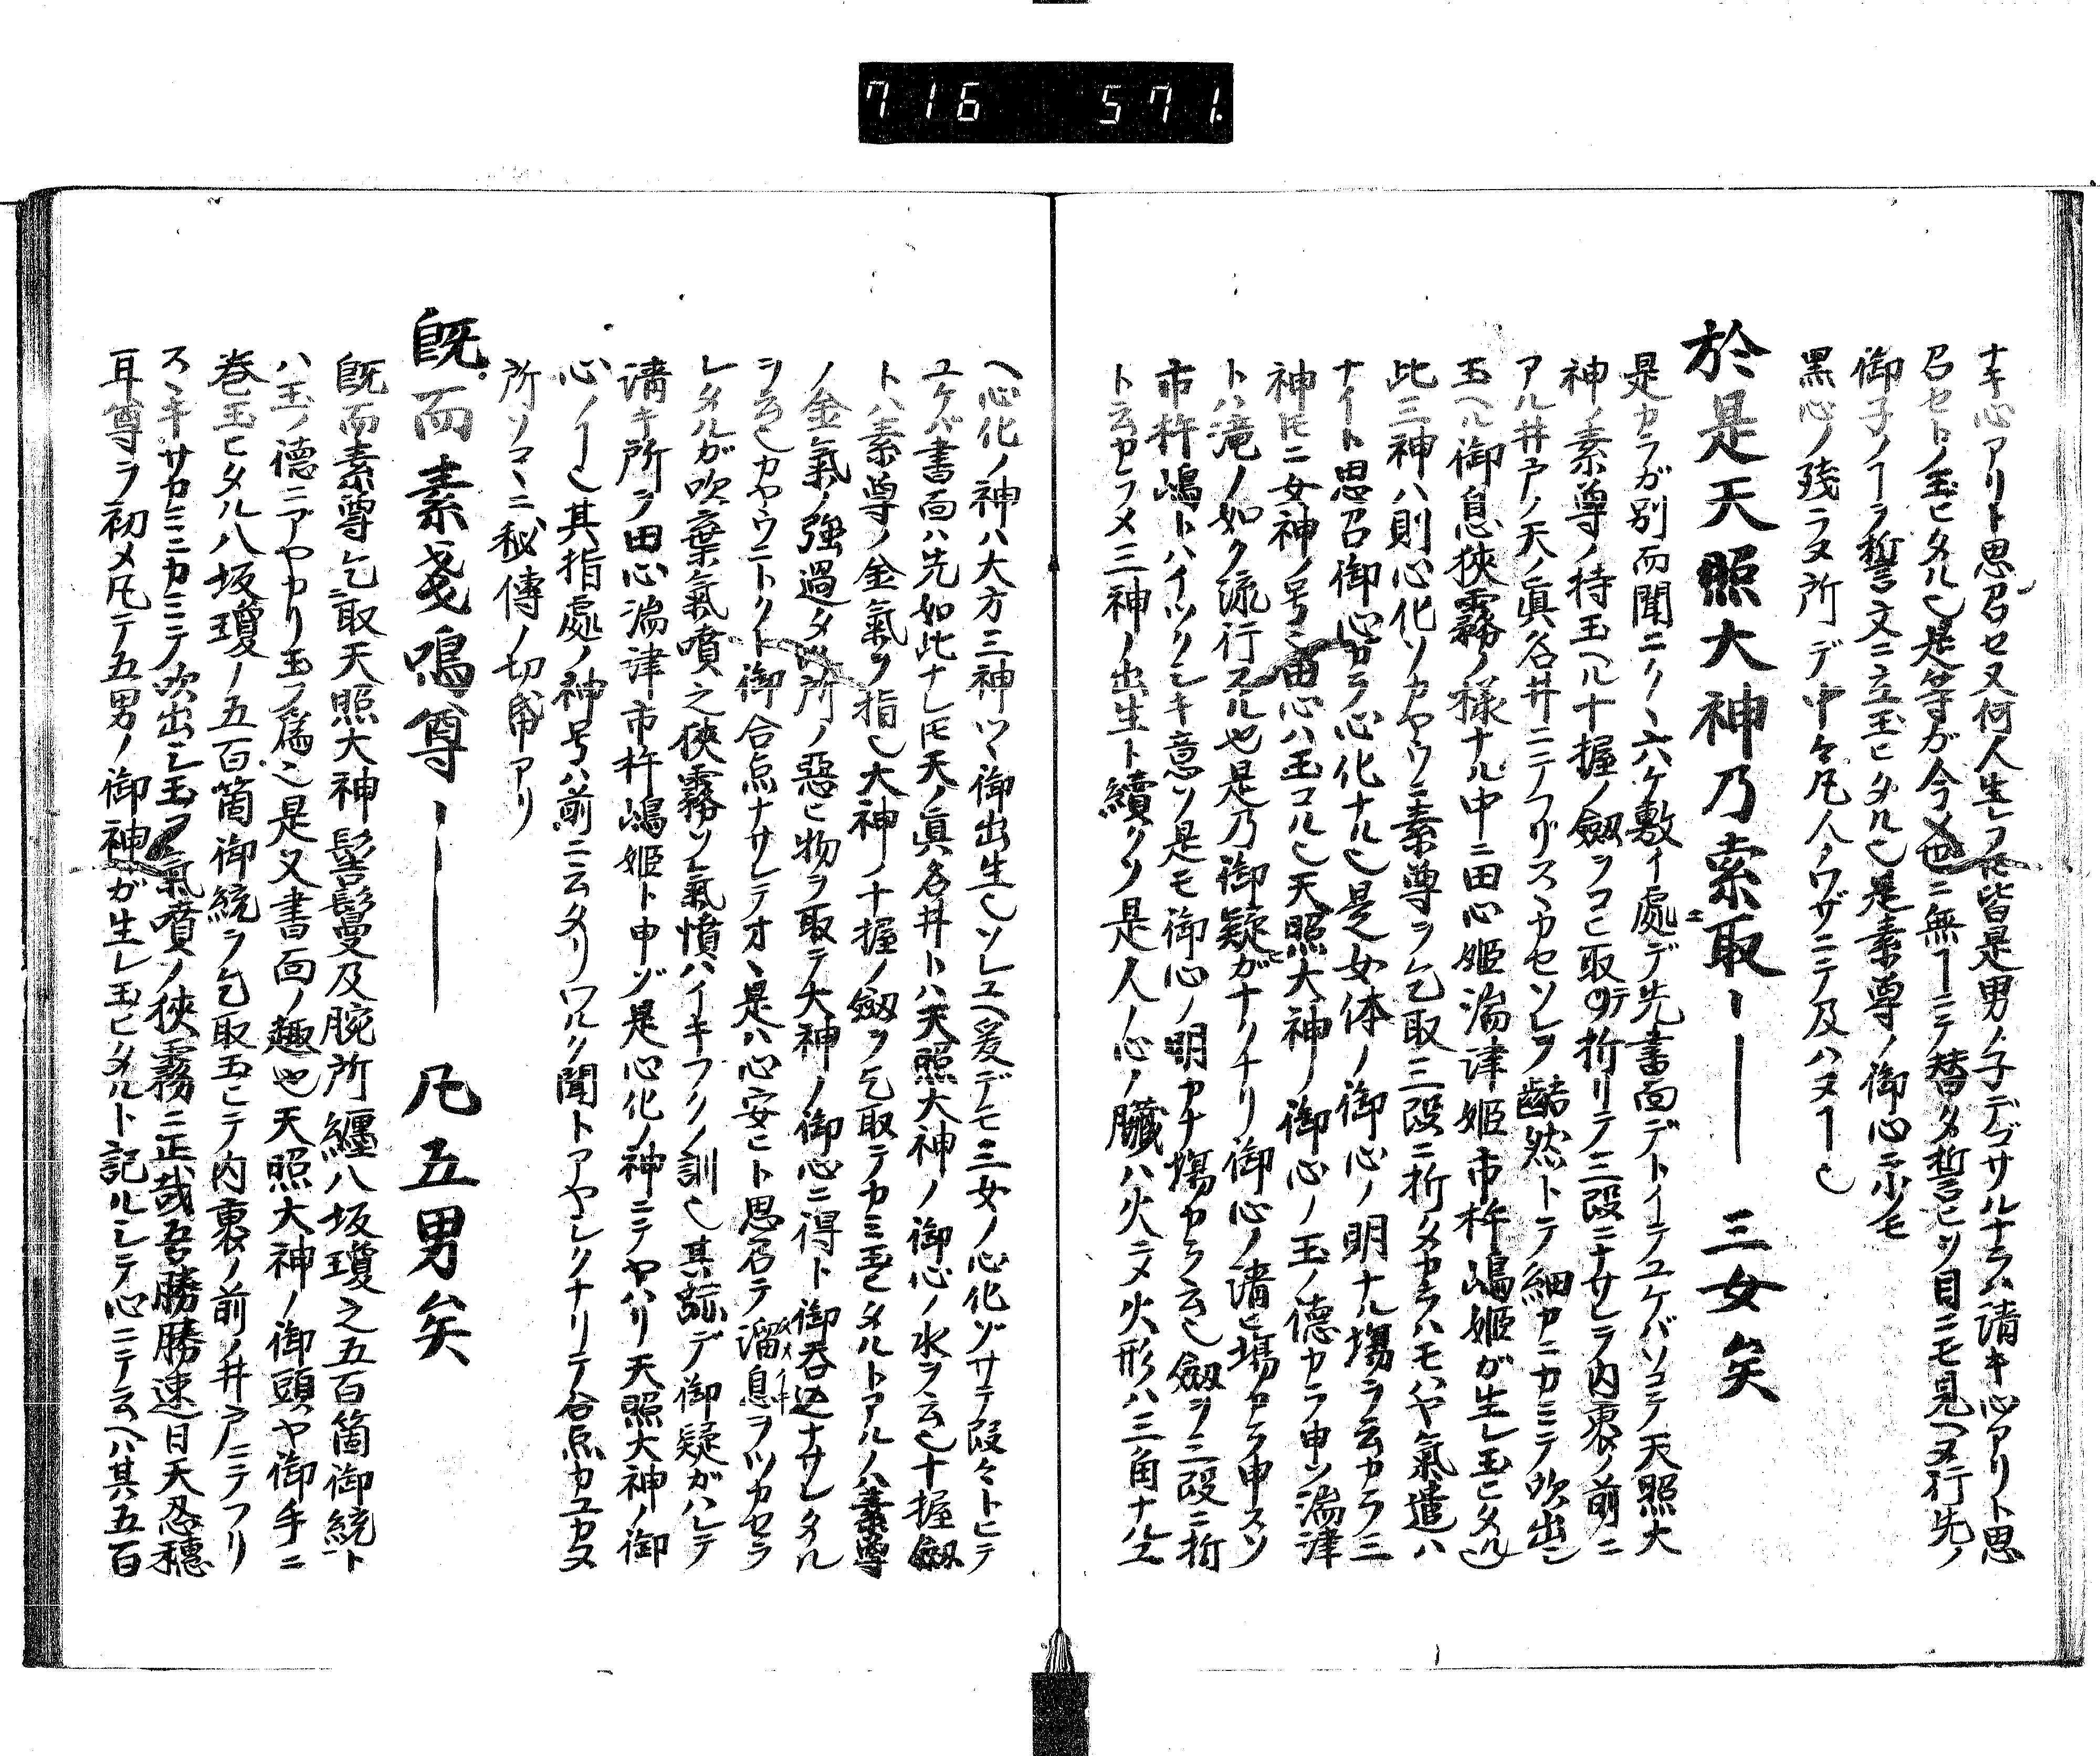 716 571.
ナキ心アリト思召セ又何人生レフ𪜈皆是男ノ子デゴサルナラハ清キ心アリト思
召セトノ玉ヒタル也是等ガ今ノ世ニ無ヿニテ替タ誓ヒソ目ニモ見ヘヌ行先ノ
御子ノヿヲ誓文ニ立玉ヒタル也是素尊ノ御心ニ少モ
黒心ノ残ラヌ所デ中々凡人ノワザニテ及ハヌヿ也
於是天照大神乃索取ーー三女矣
是カラガ別而聞ニクヽ六ケ敷イ處デ先書面デトイテユケバソコデ天照大
神ノ素尊ノ持玉ヘル十握ノ劔ヲコヒ取テ折リテ三段ニナサレテ内裏ノ前ニ
アル井戸ノ天ノ眞名井ニテフリスヽカセソレヲ齰然トテ細カニカミテ吹出シ
玉ヘル御息狹霧ノ様ナル中ニ田心姫湍津姫市杵嶋姫ガ生レ玉ヒタル也
此三神ハ則心化ソカヤウニ素尊ヲ乞取三段ニ折タカラハモハヤ氣遣ハ
ナイト思召御心カラ心化ナル也是女体ノ御心ノ明ナル塲ヲ云カラ三
神𪜈ニ女神ノ号也田心ハ玉コル也天照大神ノ御心ノ玉ノ德カラ申ソ湍津
トハ滝ノ如ク流行スル也是乃御疑ガナクチリ御心ノ清ヒ塲カラ申スソ
市杵嶋トハイツクシキ意ソ是モ御心ノ明カナ塲カラ云也劔ヲ二段ニ折
ト云カラメ三神ノ出生ト續クソ是人ノ心ノ臓ハ火ニメ火形ハ三角ナルユ
ヘ心化ノ神ハ大方三神ツヽ御出生也ソレユヘ爰デモ三女ノ心化ゾサテ段々トヒテ
ユケバ書面ハ先如此ナレ𪜈天ノ眞名井トハ天照大神ノ御心ノ水ヲ云也十握劔
トハ素尊ノ金氣ヲ指也大神ノ十握ノ劔ヲ乞取テカミ玉ヒタルトアルノハ素尊
ノ金氣ノ強過タ所ノ惡ヒ物ヲ取テ大神ノ御心ニ得ト御呑込ナサレタル
ヲ云也カヤウニトクト御合点ナサレテオヽ是ハ心安ヒト思召テ溜息ヲツカセラ
レタルガ吹棄氣噴之狹霧ソ氣憤ハイキフクノ訓也其跡デ御疑ガハレテ
清キ所ヲ田心湍津市杵嶋姫ト申ゾ是心化ノ神ニテヤハリ天照大神ノ御
心ノヿ也其指處ノ神号ハ前ニ云タリワルク聞トアヤシクナリテ合点カユカヌ
所ソコヽニ秘傳ノ切帋アリ
既而素戔嗚尊ーー凡五男矣
既而素尊乞取天照大神髻鬘及腕所纏八坂瓊之五百箇御統ト
ハ玉ノ德ニアヤカリ玉フ爲也是又書面ノ趣也天照大神ノ御頭ヤ御手ニ
巻玉ヒタル八坂瓊ノ五百箇御統ヲ乞取玉ヒテ内裏ノ前ノ井戸ニテフリ
スヽキサカミニカミテ吹出シ玉フ氣噴ノ狹霧ニ正哉吾勝勝速日天忍穗
耳尊ヲ初メ凡テ五男ノ御神ガ生レ玉ヒタルト記ルシテ心ニテ云ヘハ其五百